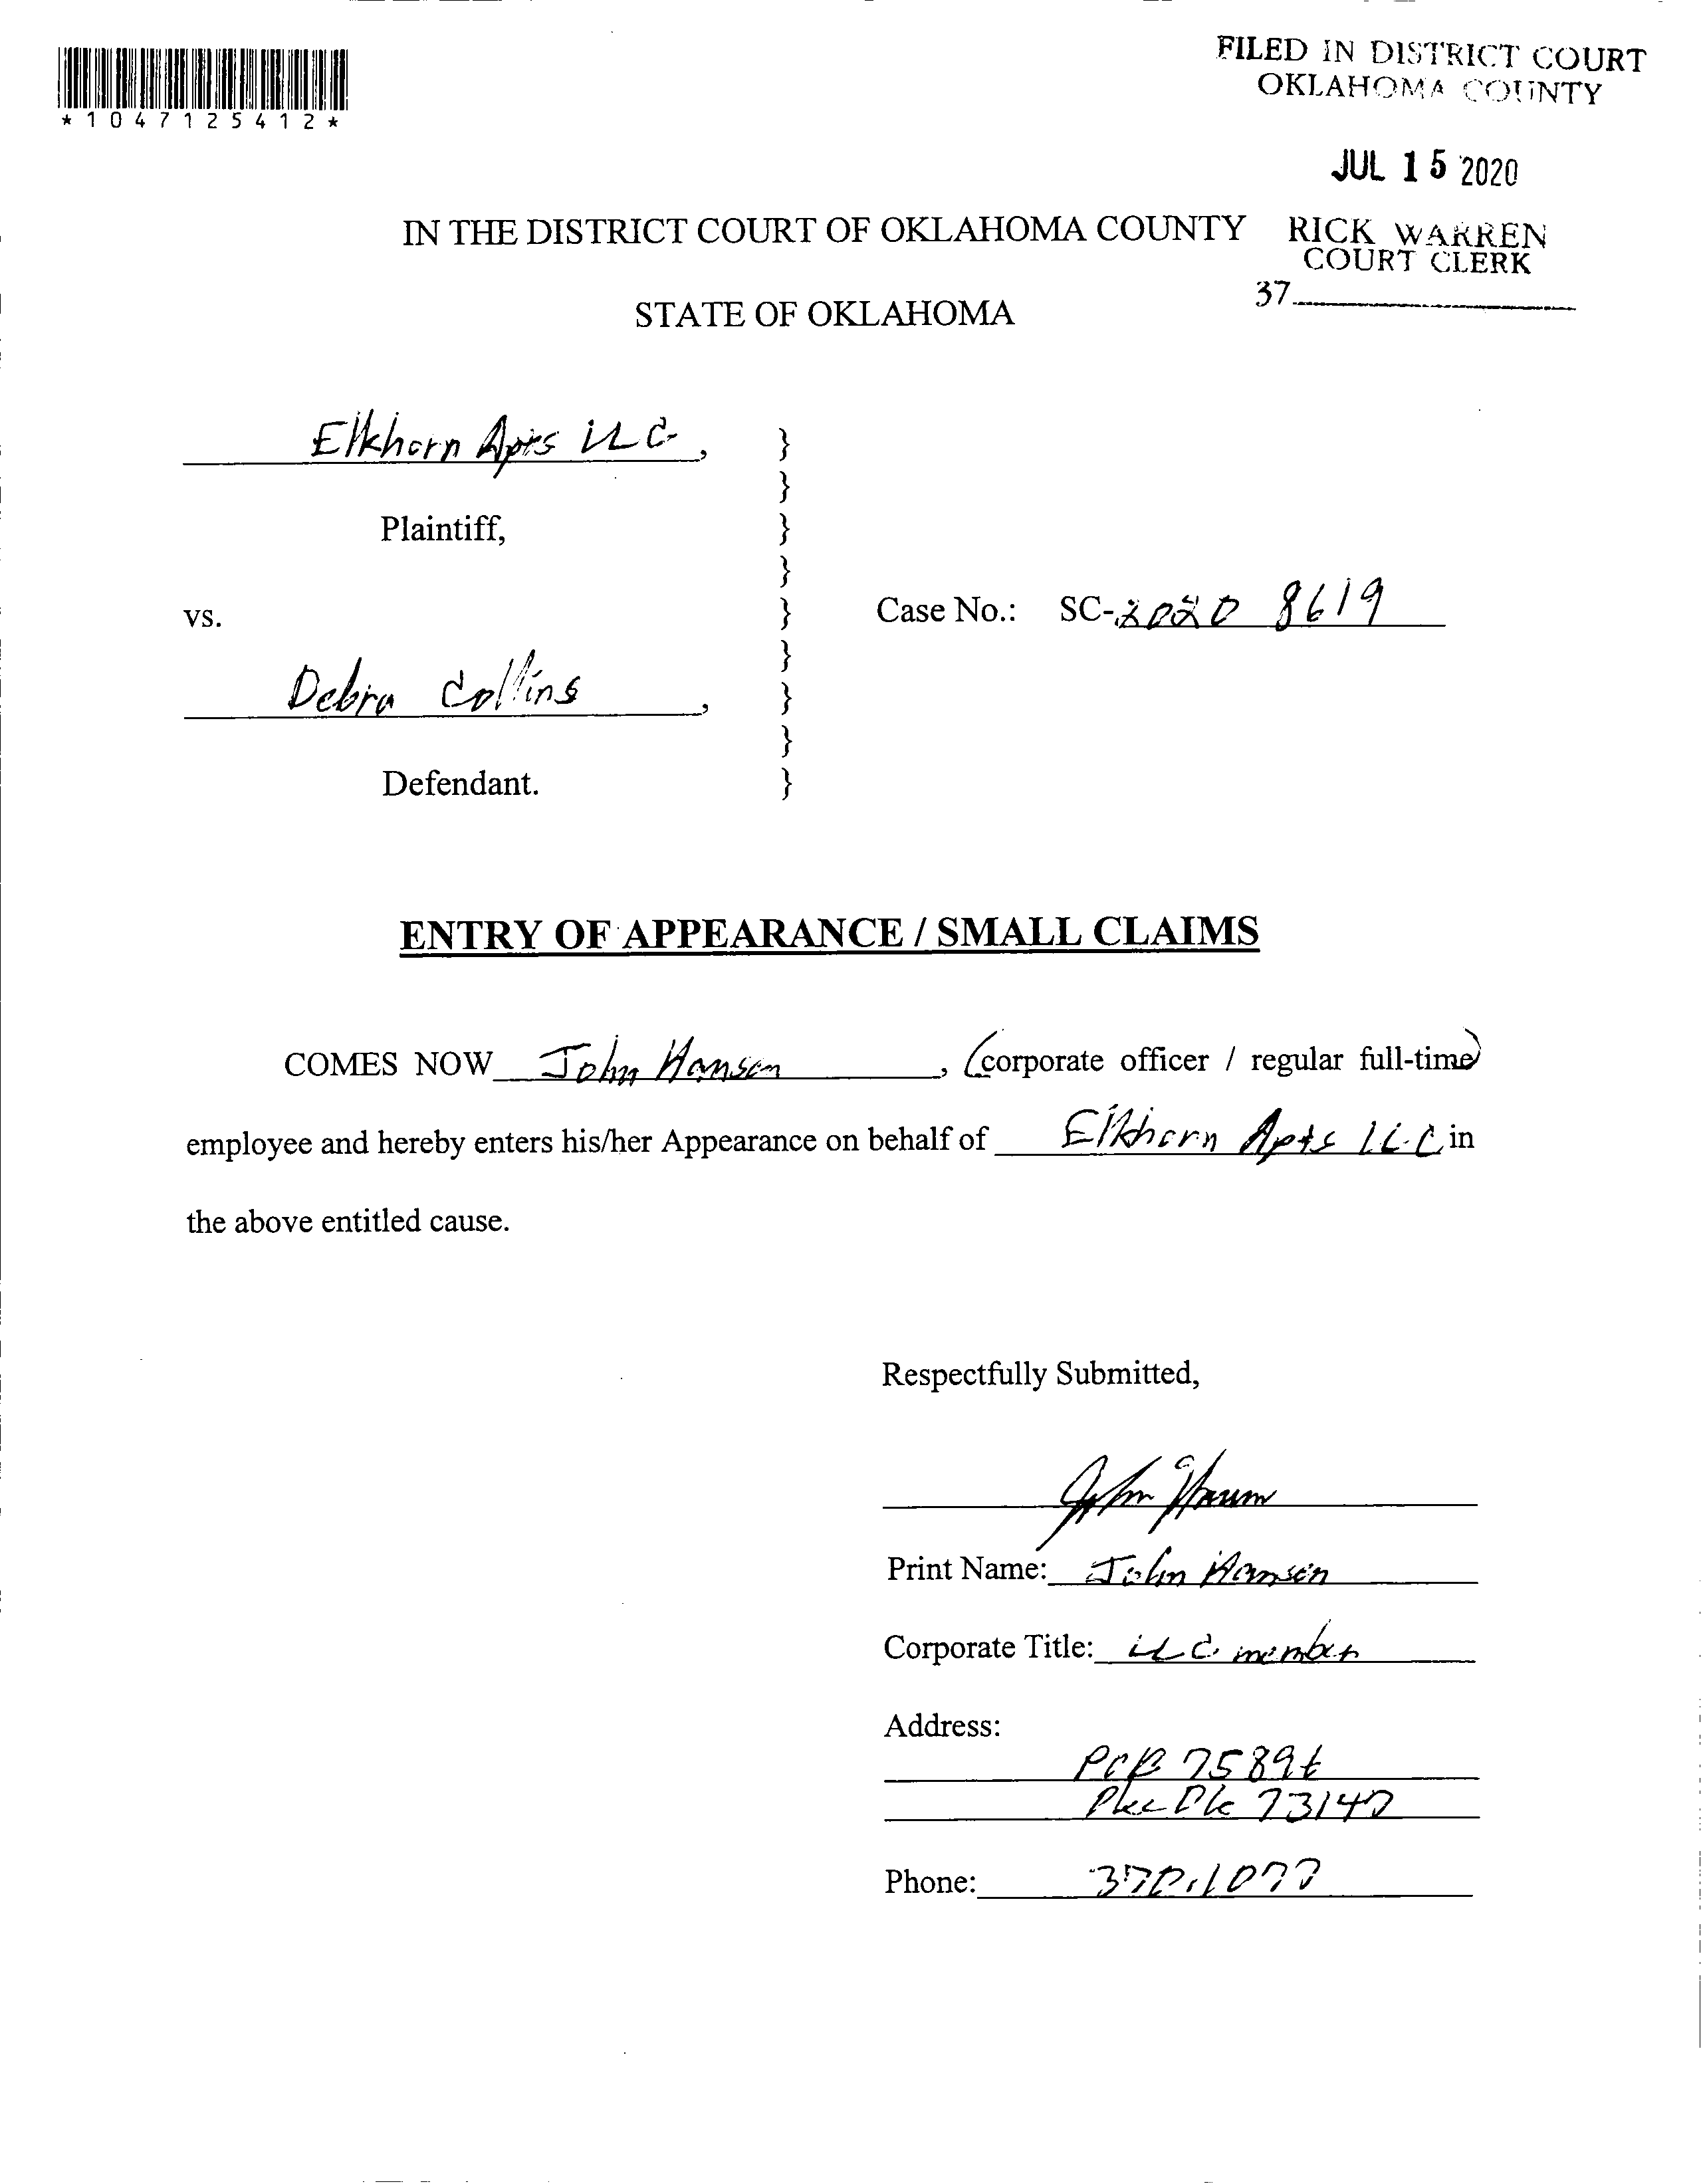 *1047125412*
FILED IN DISTRICT COURT
OKLAHOMA COUNTY
JUL 15 2020
RICK WARREN
COURT CLERK
37
IN THE DISTRICT COURT OF OKLAHOMA COUNTY
STATE OF OKLAHOMA
Elkhorn Apts LLC,
Plaintiff,
vs.
Case No.: SC-2020 8619
Debra Collins,
Defendant.
ENTRY OF APPEARANCE / SMALL CLAIMS
COMES NOW John Hansen, (corporate officer / regular full-time)
employee and hereby enters his/her Appearance on behalf of Elkhorn Apts LLC in
the above entitled cause.
Respectfully Submitted,
John Hansen
Print Name: John Hansen
Corporate Title: LLC member
Address:
POB 75896
73147
Phone: 370.1077